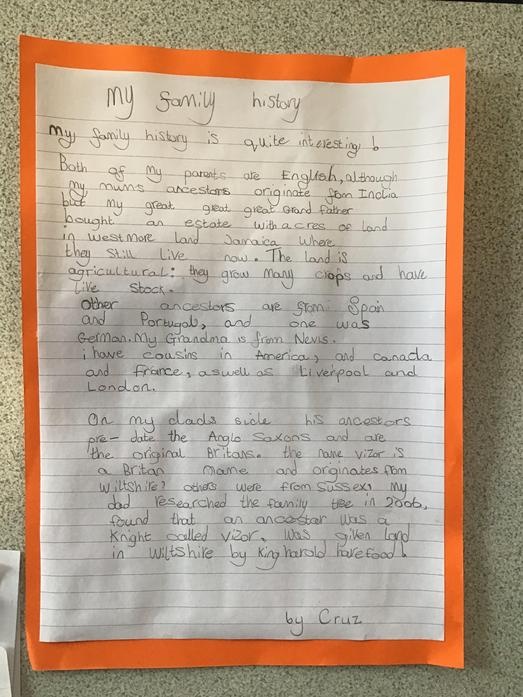 My family history
My family history is quite interesting!
Both of my parents are English, although
my mums ancestors originate from India
but my great great great Grand father
bought an estate with acres of land
in westmore land Jamaica where
they still live now. The land is
agricultural: they grow many crops and have
live stock.
Other ancestors are from Spain
and Portugal, and one was
German. My Grandma is from Nevis.
i have cousins in America, and canada
and france, aswell as Liverpool and
London.
On my dads side his ancestors
pre-date the Anglo Saxons and are
the original Britans. the name vizor is
a Britan name and originates from
wiltshire? others were from Sussex, My
dad researched the family tree in 2006,
found that an ancestor was a
Knight called vizor, was given land
in wiltshire by King harold harefood!
by Cruz